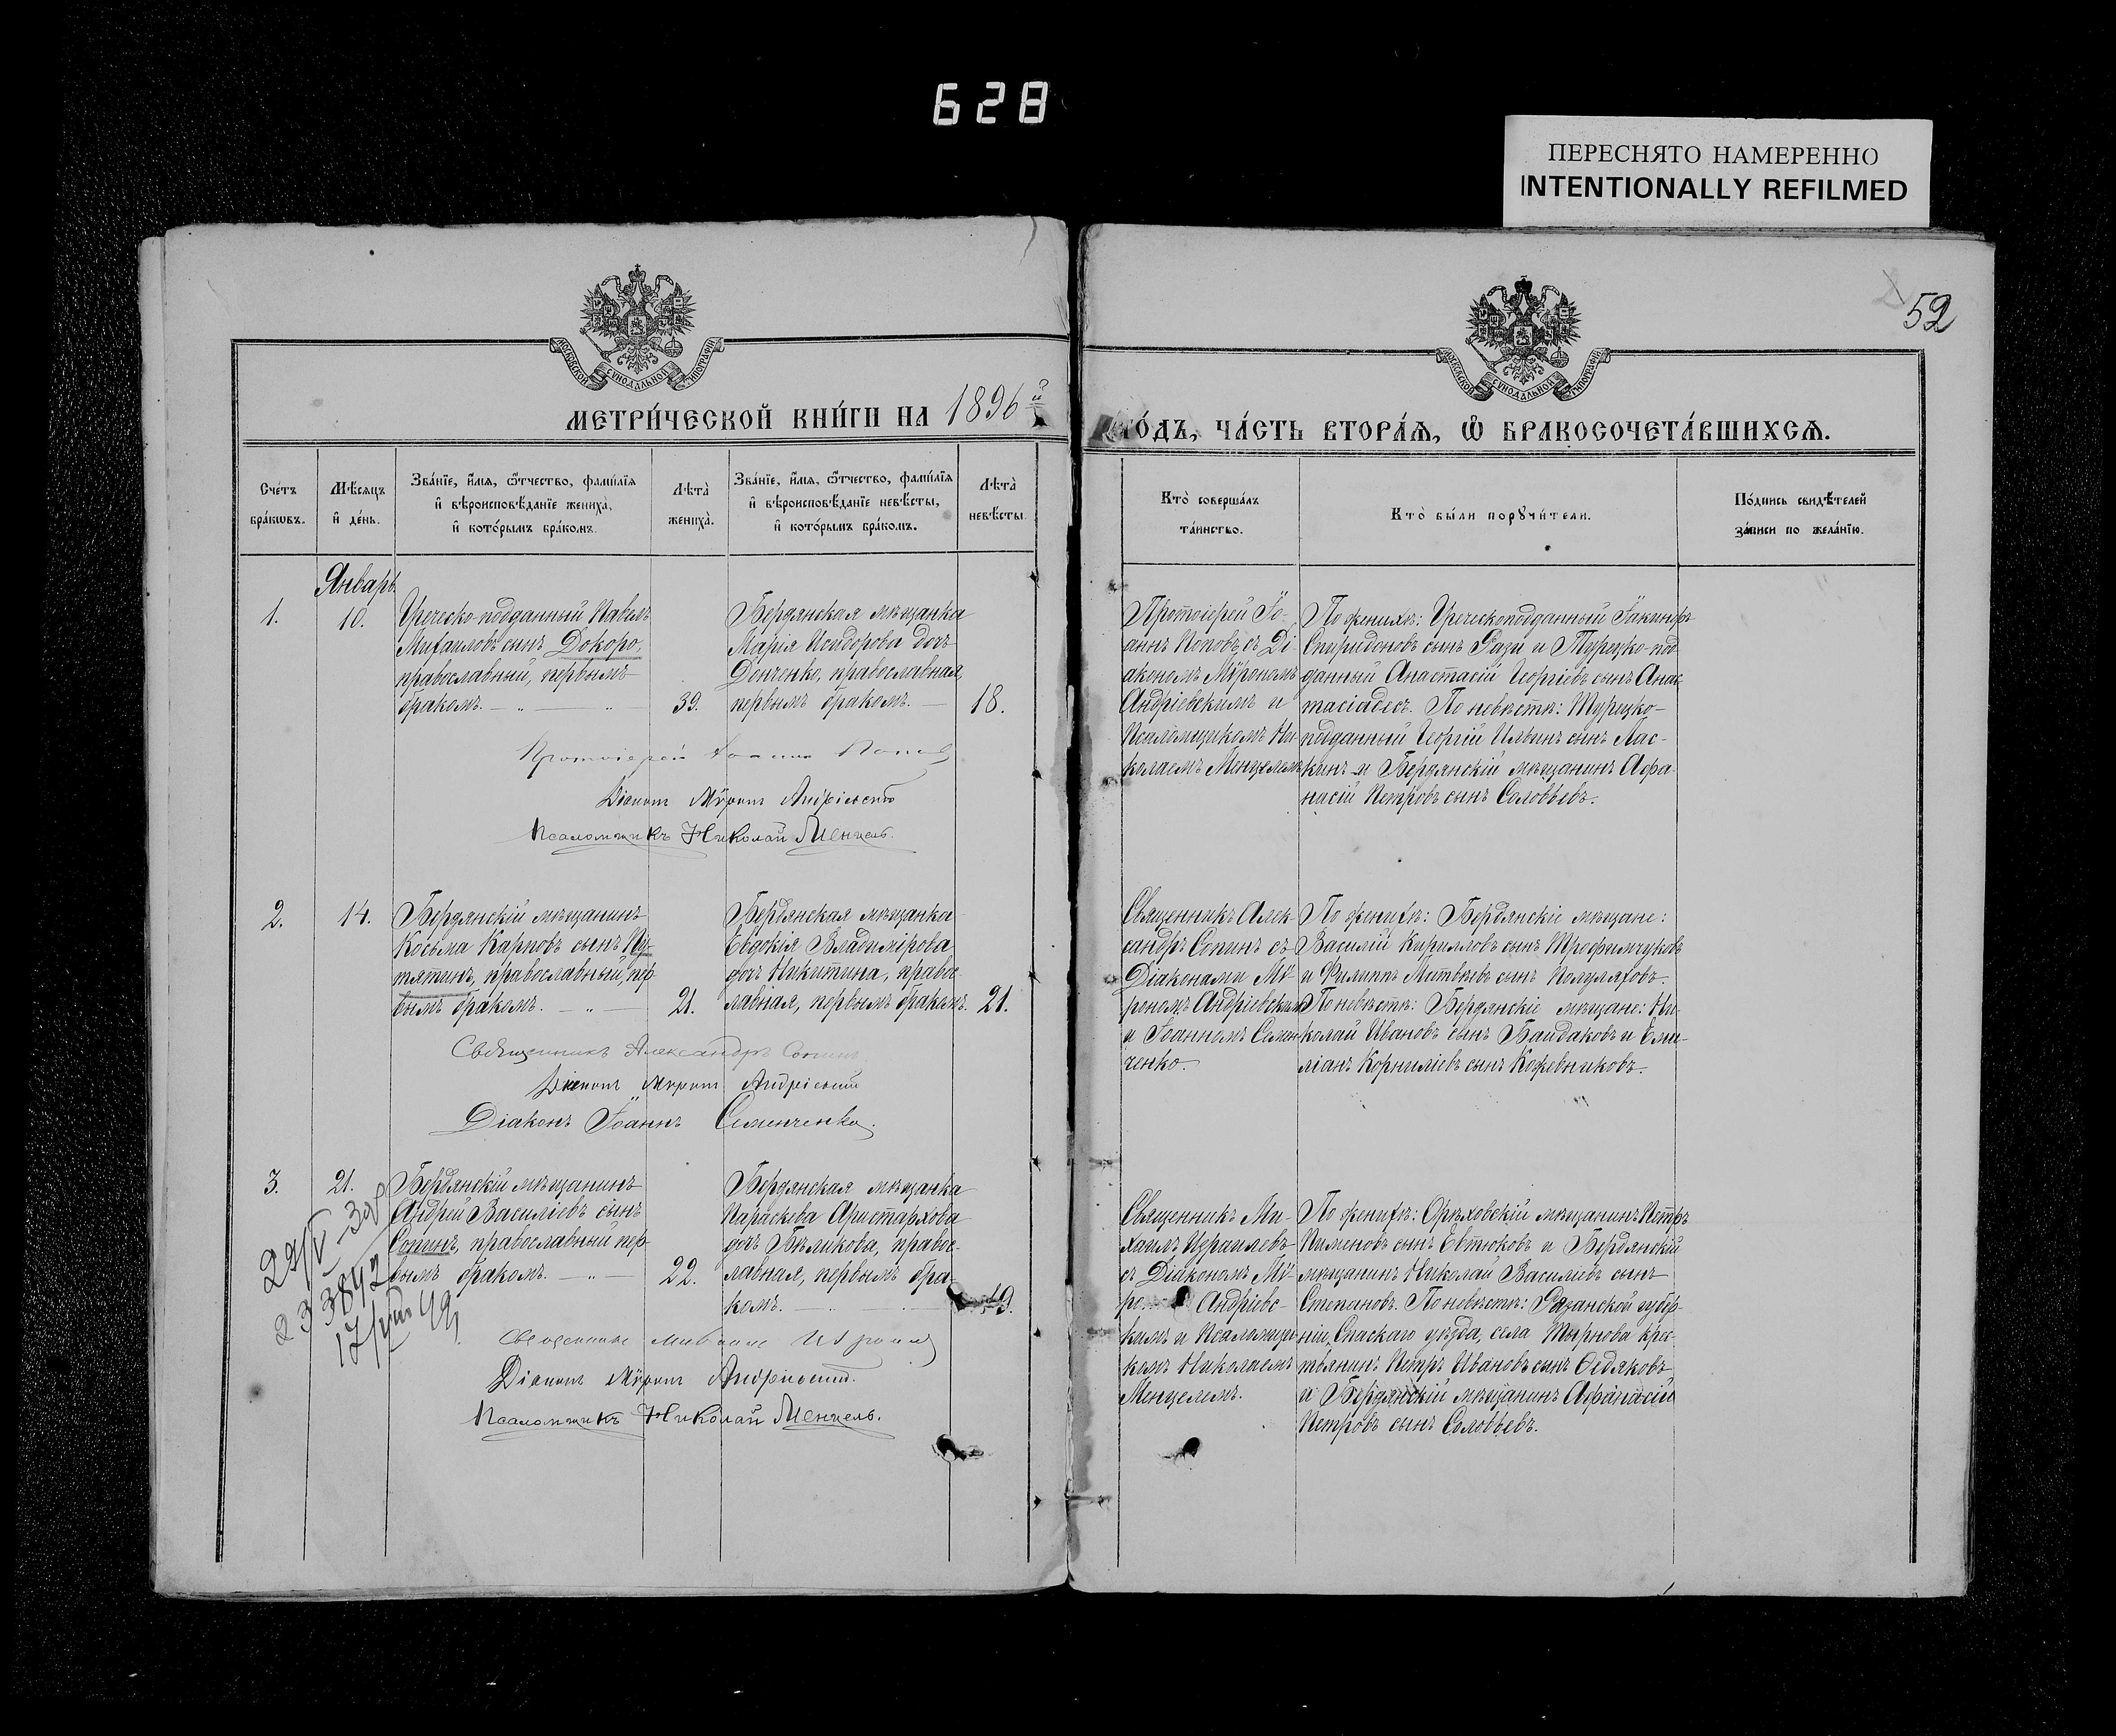 628
ПЕРЕСНЯТО НАМЕРЕННО
INTENTIONALLY REFILMED
52
МОСКОВСКОЙ СУНОДАЛЬНОЙ ТИПОГРАФІИ
МОСКОВСКОЙ СУНОДАЛЬНОЙ ТИПОГРАФІИ
МЕТРИ́ЧЕСКОЙ КНИ́ГИ НА 1896й
ГО́ДЪ, ЧА́СТЬ ВТОРА́Я, Ѽ БРАКОСОЧЕТА́ВШИХСЯ.
Сче́тъ
бра́кωвъ.
Мѣ́сяцъ
и҆ де́нь.
Зва́нїе, и҆́мя, ѻ҆́тчество, фами́лїя
и҆ вѣроисповѣ́данїе жениха̀,
и҆ кото́рымъ бра́комъ.
Лѣта̀
жениха̀.
Зва́нїе, и҆́мя, ѻ҆́тчество, фами́лїя
и҆ вѣроисповѣ́данїе невѣ́сты,
и҆ кото́рымъ бра́комъ.
Лѣта̀
невѣ́сты.
Кто̀ соверша́лъ
та́инство.
Кто̀ бы́ли порꙋчи́тели.
По́дпись свидѣ́телей
за́писи по жела́нїю.
Январь.
1.
10.
Греческо-подданный Павелъ
Михаиловъ сынъ Докоро,
православный, первымъ
бракомъ. — „ — „ —
39.
Бердянская мѣщанка
Марія Исидорова дочь
Донченко, православная,
первымъ бракомъ. —
18.
Протоіерей Іо-
аннъ Поповъ съ Ді-
акономъ Мѵрономъ
Андріевскимъ и
Псаломщикомъ Ни-
колаемъ Менцелемъ
По женихѣ: Греческоподданный Іакинфъ
Спиридоновъ сынъ Рази и Турецко-под-
данный Анастасій Георгіевъ сынъ Анас-
тасіадесъ. По невѣстѣ: Турецко-
подданный Георгій Ильинъ сынъ Лас-
кинъ и Бердянскій мѣщанинъ Афа-
насій Петровъ сынъ Соловьевъ.
Протоіерей Іоаннъ Поповъ
Діаконъ Мѵронъ Андріевскій
Псаломщикъ Николай Менцель.
2.
14.
Бердянскій мѣщанинъ
Косьма Карповъ сынъ Пу-
тятинъ, православный, пер-
вымъ бракомъ. — „ —
21.
Бердянская мѣщанка
Евдокія Владимірова
дочь Никитина, правос-
лавная, первымъ бракомъ.
21.
Священникъ Алек-
сандръ Сопинъ съ
Діаконами Мѵ-
рономъ Андріевскимъ
и Іоанномъ Семен-
ченко.
По женихѣ: Бердянскіе мѣщане:
Василій Кирилловъ сынъ Трофимчуковъ
и Филиппъ Матвѣевъ сынъ Полуляховъ.
По невѣстѣ: Бердянскіе мѣщане: Ни-
колай Ивановъ сынъ Байдаковъ и Еми-
ліанъ Корниліевъ сынъ Кожевниковъ.
Священникъ Александръ Сопинъ
Діаконъ Мѵронъ Андріевскій
Діаконъ Іоаннъ Семенченко.
3.
21.
Бердянскій мѣщанинъ
Андрей Василіевъ сынъ
Сопинъ, православный, пер-
вымъ бракомъ. — „ —
22.
Бердянская мѣщанка
Параскева Аристархова
дочь Бѣликова, правос-
лавная, первымъ бра-
комъ.
19.
233842
Священникъ Ми-
хаилъ Израилевъ
съ Діакономъ Мѵ-
ро... Андріевс-
кимъ и Псаломщи-
комъ Николаемъ
Менцелемъ.
По женихѣ: Орѣховскій мѣщанинъ Петръ
Пименовъ сынъ Евтюковъ и Бердянскій
мѣщанинъ Николай Василіевъ сынъ
Степановъ. По невѣстѣ: Рязанской губер-
ніи, Спаскаго уѣзда, села Тырнова крес-
тьянинъ Петръ Ивановъ сынъ Федяковъ
и Бердянскій мѣщанинъ Афанасій
Петровъ сынъ Соловьевъ.
Священникъ Михаилъ Израилевъ
Діаконъ Мѵронъ Андріевскій.
Псаломщикъ Николай Менцель.